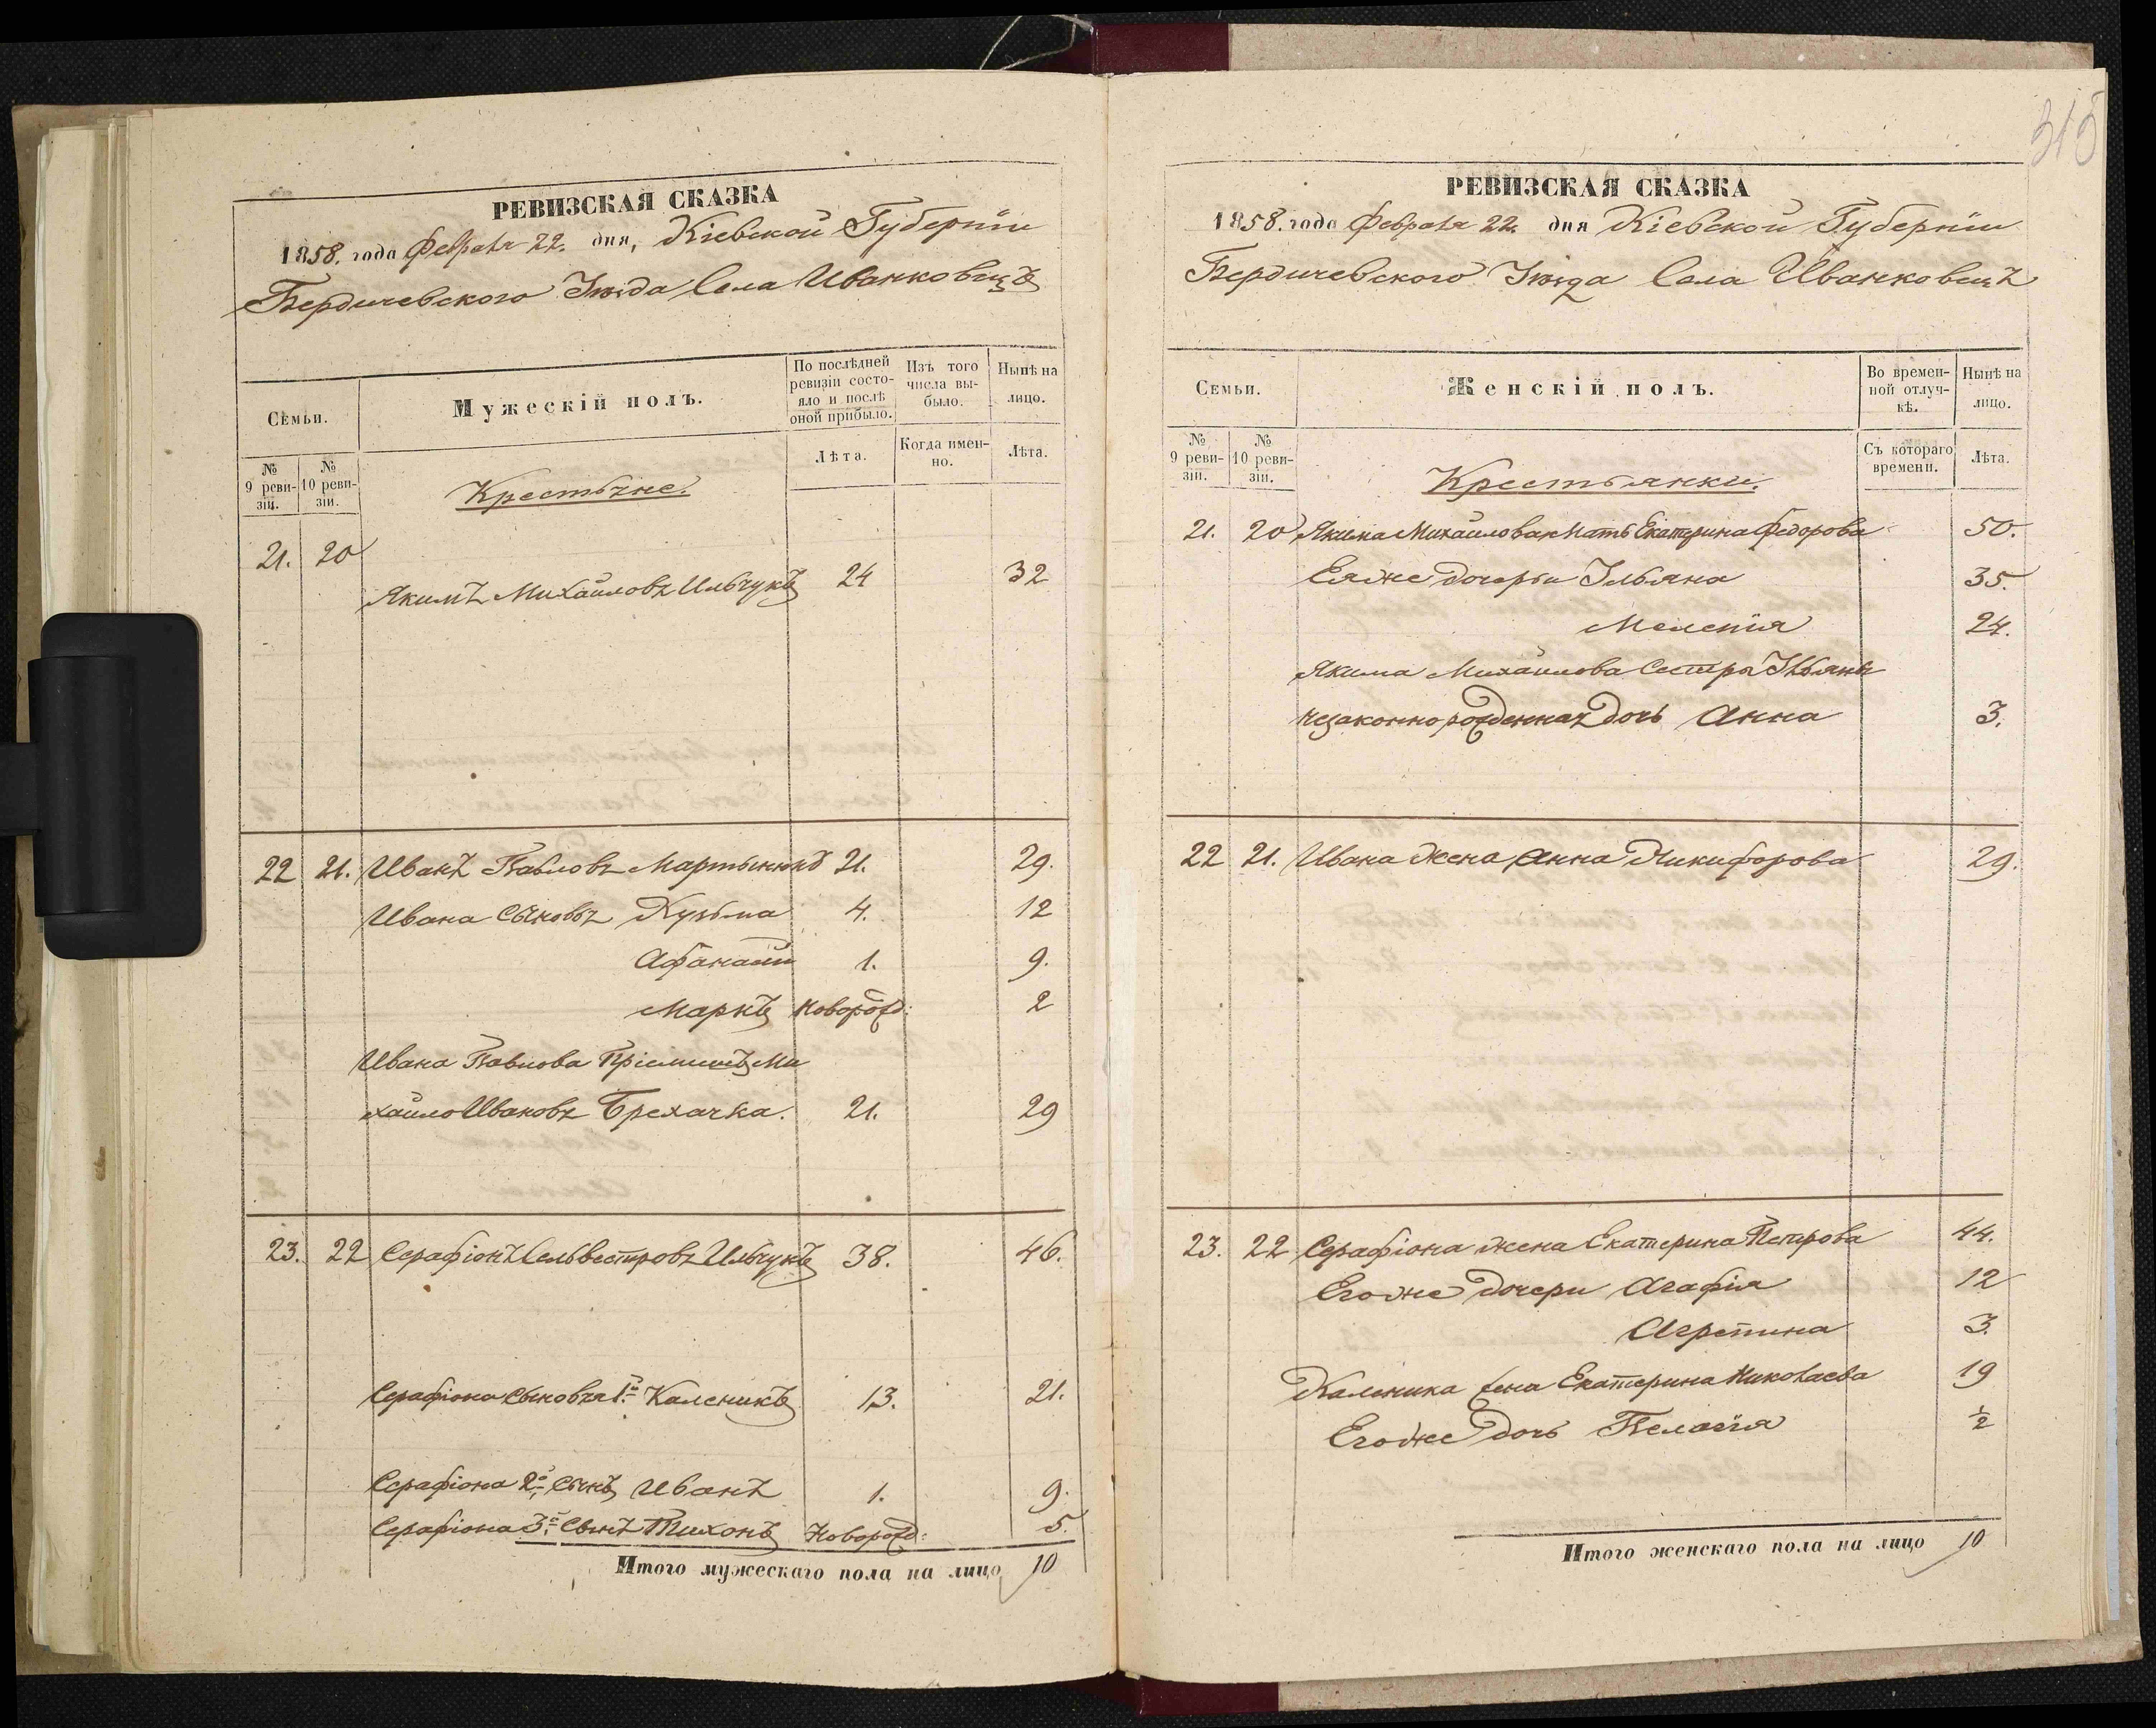 315
РЕВИЗСКАЯ СКАЗКА
1858. года Февраля 22. дня, Кіевской Губерніи
Бердичевского Уѣзда Села Иванковецъ
Семьи.
Мужескій полъ.
По послѣдней ревизіи состояло и послѣ оной прибыло.
Изъ того числа выбыло.
Нынѣ на лицо.
№ 9 ревизіи.
№ 10 ревизіи.
Лѣта.
Когда именно.
Лѣта.
Крестьяне.
21. 20 Якимъ Михайловъ Ильчукъ 24 32
22 21. Иванъ Павловъ Мартынюкъ 21. 29.
Ивана Сыновья Кузьма 4. 12
Афанасій 1. 9.
Маркъ Новорожд: 2
Ивана Павлова Пріемышъ Ми
хайло Ивановъ Брехачка. 21. 29
23. 22 Серафіонъ Сельвестровъ Ильчукъ 38. 46.
Серафіона Сыновья 1й Каленикъ 13. 21.
Серафіона 2й Сынъ Иванъ 1. 9.
Серафіона 3й Сынъ Тихонъ Новорожд: 5.
Итого мужескаго пола на лицо 10
РЕВИЗСКАЯ СКАЗКА
1858. года Февраля 22. дня Кіевской Губерніи
Бердичевского Уѣзда Села Иванковецъ
Семьи.
Женскій полъ.
Во временной отлучкѣ.
Нынѣ на лицо.
№ 9 ревизіи.
№ 10 ревизіи.
Съ котораго времени.
Лѣта.
Крестьянки.
21. 20 Якима Михайлова Мать Екатерина Федорова 50.
Еяже дочери Ульяна 35.
Меленія 24.
Якима Михайлова Сестры Ульяны
незаконнорожденная Дочь Анна 3.
22 21. Ивана Жена Анна Никифорова 29.
23. 22 Серафіона жена Екатерина Петрова 44.
Егоже дочери Агафія 12
Агрепина 3.
Каленика жена Екатерина Николаева 19
Егоже дочь Пелагія ½
Итого женскаго пола на лицо 10